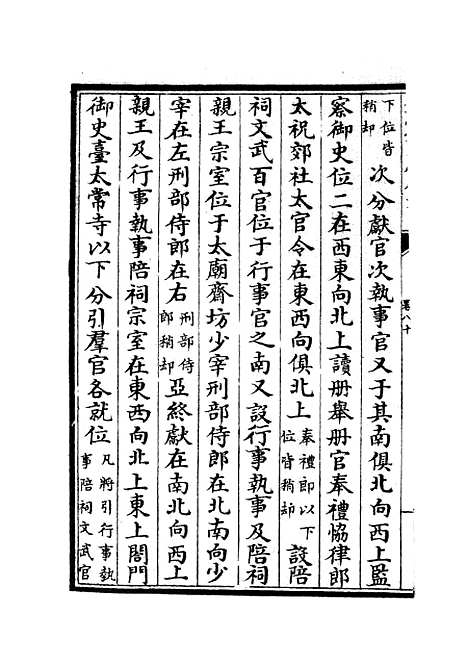 下位皆稍却次分獻官次執事官又于其南俱北向西上監
察御史位二在西東向北上讀册舉册官奉禮恊律郎
太祝郊社太官令在東西向俱北上奉禮郎以下位皆稍却設陪
祠文武百官位于行事官之南又設行事執事及陪祠
親王宗室位于太廟齋坊少宰刑部侍郎在北南向少
宰在左刑部侍郎在右刑部侍郎稍却亞終獻在南北向西上
親王及行事執事陪祠宗室在東西向北上東上閤門
御史臺太常寺以下分引羣官各就位凡將引行事執事陪祠文武官